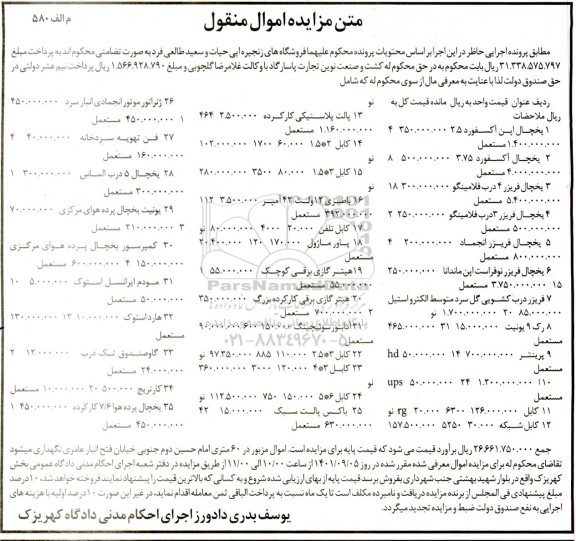 متن مزایده اموال منقول
م الف ۵۸۰
مطابق پرونده اجرایی حاظر در این اجرا بر اساس محتویات پرونده محکوم علیهما فروشگاه های زنجیره ایی حیات و سعید طالعی فرد به صورت تضامنی محکوم اند به پرداخت مبلغ
۳۱.۳۳۸.۵۷۵.۷۹۷ ریال بابت محکوم به در حق محکوم له کشت و صنعت نوین تجارت پاسارگاد با وکالت غلامرضا گلچوبی و مبلغ ۱.۵۶۶.۹۲۸.۷۹۰ ریال پرداخت نیم عشر دولتی در
حق صندوق دولت لذا با عنایت به معرفی مال از سوی محکوم له که شامل
ردیف عنوان قیمت واحد به ریال مانده قیمت کل به
ریال ملاحضات
۱ یخچال این آکسفورد ۲.۵ ۳۵۰.۰۰۰.۰۰۰ ۴
۱.۴۰۰.۰۰۰.۰۰۰ مستعمل
۲ یخچال آکسفورد ۳.۷۵ ۵۰۰.۰۰۰.۰۰۰ ۸
۴.۰۰۰.۰۰۰.۰۰۰ مستعمل
۳ یخچال فریزر ۴ درب فلامینگو ۳۰۰.۰۰۰.۰۰۰ ۱۸
۵.۴۰۰.۰۰۰.۰۰۰ مستعمل
۴ یخچال فریزر ۳درب فلامینگو ۲۵۰.۰۰۰.۰۰۰ ۲
۵۰۰.۰۰۰.۰۰۰ مستعمل
۵ یخچال فریزر انجماد ۲۰۰.۰۰۰.۰۰۰ ۴
۸۰۰.۰۰۰.۰۰۰ مستعمل
۶ یخچال فریزر نوفراست این ماندانا ۲۵۰.۰۰۰.۰۰۰
۱۵ ۳.۷۵۰.۰۰۰.۰۰۰ مستعمل
۷ فریزر درب کشویی گل سرد متوسط الکترو استیل
۸۵.۰۰۰.۰۰۰ ۲۰ ۱.۷۰۰.۰۰۰.۰۰۰ نو
۸ رک ۹ یونیت ۱۵.۰۰۰.۰۰۰ ۳۱ ۴۶۵.۰۰۰.۰۰۰
مستعمل
۹ پرینتر ۷۰۰.۰۰۰.۰۰۰ ۱۴ ۵۰.۰۰۰.۰۰۰ hd
مستعمل
۱۱۰ ۱.۲۰۰.۰۰۰.۰۰۰ ۲۴ ۵۰.۰۰۰.۰۰۰ ups
مستعمل
۱۱ کابل rg ۲۰.۰۰۰ ۶۳۰۰ ۱۲۶.۰۰۰.۰۰۰ نو
۱۲ کابل شبکه ۳۰.۰۰۰ ۵۲۵۰ ۱۵۷.۵۰۰.۰۰۰
نو
۱۳ پالت پلاستیکی کارکرده ۲.۵۰۰.۰۰۰ ۴۶۴
۱.۱۶۰.۰۰۰.۰۰۰ مستعمل
۱۴ کابل ۲*۱.۵ ۶۰.۰۰۰ ۱۷۰۰ ۱۰۲.۰۰۰.۰۰۰
نو
۱۵ کابل ۳*۱.۵ ۸۰.۰۰۰ ۳۵۰۰ ۲۸۰.۰۰۰.۰۰۰
نو
۱۶ باطری ۱۲ ولت ۴۲ آمپر ۳.۵۰۰.۰۰۰ ۱۱۲
۳۹۲.۰۰۰.۰۰۰ مستعمل
۱۷ کابل تلفن ۲۰.۰۰۰ ۴۰۰۰ ۸۰.۰۰۰.۰۰۰ نو
۱۸ پاور ماژول ۱۷۰.۰۰۰ ۱۲۰ ۲۰.۴۰۰.۰۰۰
مستعمل
۱۹ هیتر گازی برقی کوچک ۵۵.۰۰۰.۰۰۰ ۱
۵۵.۰۰۰.۰۰۰ مستعمل
۲۰ هیتر گازی برقی کارکرده بزرگ ۳۵۰.۰۰۰.۰۰۰
۲ ۷۰۰.۰۰۰.۰۰۰ مستعمل
مستعمل
۲۲ کابل ۳*۲.۵ ۱۱۰.۰۰۰ ۸۸۵ ۹۷.۳۵۰.۰۰۰ نو
۲۳ کابل ۳*۴ ۱۲۰.۰۰۰ ۳۰۰۰ ۳۶۰.۰۰۰.۰۰۰
نو
۲۴ کابل ۶*۵ ۱۵۰.۰۰۰ ۷۵۰ ۱۱۲.۵۰۰.۰۰۰ نو
۲۵ باکس پالت سبک ۱۵.۰۰۰.۰۰۰ ۴۲
۶۳۰.۰۰۰.۰۰۰ مستعمل
۲۶ ژنراتور موتور انجمادی انبار سرد ۴۵۰.۰۰۰.۰۰۰
۱ ۴۵۰.۰۰۰.۰۰۰ مستعمل
۲۷ فن تهویه سردخانه ۴۰.۰۰۰.۰۰۰ ۴
۱۶۰.۰۰۰.۰۰۰ مستعمل
۲۸ یخچال ۵ درب الماس ۳۰۰.۰۰۰.۰۰۰ ۱
۳۰۰.۰۰۰.۰۰۰ مستعمل
۲۹ یونیت یخچال پرده هوای مرکزی ۷۰.۰۰۰.۰۰۰
۳ ۲۱۰.۰۰۰.۰۰۰ مستعمل
۳۰ کمپرسور یخچال پرده هوای مرکزی
۱۵۰.۰۰۰.۰۰۰ ۴ ۶۰۰.۰۰۰.۰۰۰ مستعمل
۳۱ مودم ایرانسل استوک ۵.۰۰۰.۰۰۰ ۱۰
۵۰.۰۰۰.۰۰۰ مستعمل
۳۲ هارد استوک ۱۰.۰۰۰.۰۰۰ ۱۳ ۱۳۰.۰۰۰.۰۰۰
مستعمل
۳۳ گاوصندوق تک درب ۱۲.۰۰۰.۰۰۰ ۲
۲۴.۰۰۰.۰۰۰ مستعمل
۳۴ کارتریج ۵۰۰.۰۰۰ ۲۰ ۱۰.۰۰۰.۰۰۰ مستعمل
۳۵ یخچال پرده هوا ۷/۶ کارکرده ۴۵۰.۰۰۰.۰۰۰ ۱
۴۵۰.۰۰۰.۰۰۰ مستعمل
جمع ۲۶.۶۶۱.۷۵۰.۰۰۰ ریال برآورد قیمت می شود که قیمت پایه برای مزایده است. اموال مزبور در ۶۰ متری امام حسین دوم جنوبی خیابان فتح انبار عامری نگهداری میشود
تقاضای محکوم له برای مزایده اموال معرفی شده مقرر شده در روز ۱۴۰۱/۰۹/۰۵ از ساعت ۱۰/۰۰ الی ۱۱/۰۰ از طریق مزایده در دفتر شعبه اجرای احکام مدنی دادگاه عمومی بخش
کهریزک واقع در بلوار شهید بهشتی جنب شهرداری بفروش برسد قیمت پایه از بهای ارزیابی شده شروع و به کسانی که بالاترین قیمت را پیشنهاد نمایند فروخته خواهد شد، ۱۰ درصد
مبلغ پیشنهادی فی المجلس از برنده مزایده دریافت و نامبرده مکلف است تا یک ماه نسبت به پرداخت الباقی ثمن معامله اقدام نماید، در غیر این صورت ۱۰ درصد اولیه با هزینه های
اجرایی به نفع صندوق دولت ضبط و مزایده تجدید میگردد.
یوسف بدری دادورز اجرای احکام مدنی دادگاه کهریزک
ParsNamadData
۰۲۱-۸۸۳۴۹۶۷۰-۵